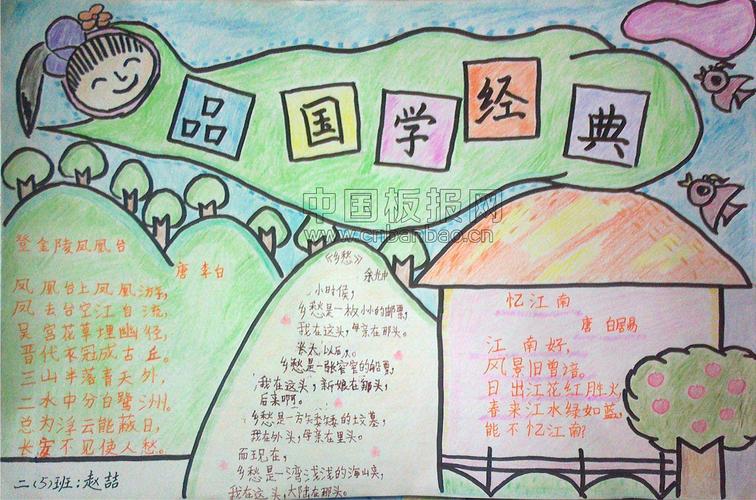 品国学经典
中国板报网
www.cnbanbao.cn
登金陵凤凰台
唐 李白
凤凰台上凤凰游,
凤去台空江自流,
吴宫花草埋幽径,
晋代衣冠成古丘。
三山半落青天外,
二水中分白鹭洲。
总为浮云能蔽日,
长安不见使人愁。
二(5)班:赵喆
《乡愁》
余光中
小时候,
乡愁是一枚小小的邮票,
我在这头,母亲在那头。
长大以后,
乡愁是一张窄窄的船票,
我在这头,新娘在那头,
后来啊。
乡愁是一方矮矮的坟墓,
我在外头,母亲在里头。
而现在,
乡愁是一湾浅浅的海峡,
我在这头,大陆在那头。
忆江南
唐 白居易
江南好,
风景旧曾谙。
日出江花红胜火,
春来江水绿如蓝,
能不忆江南?